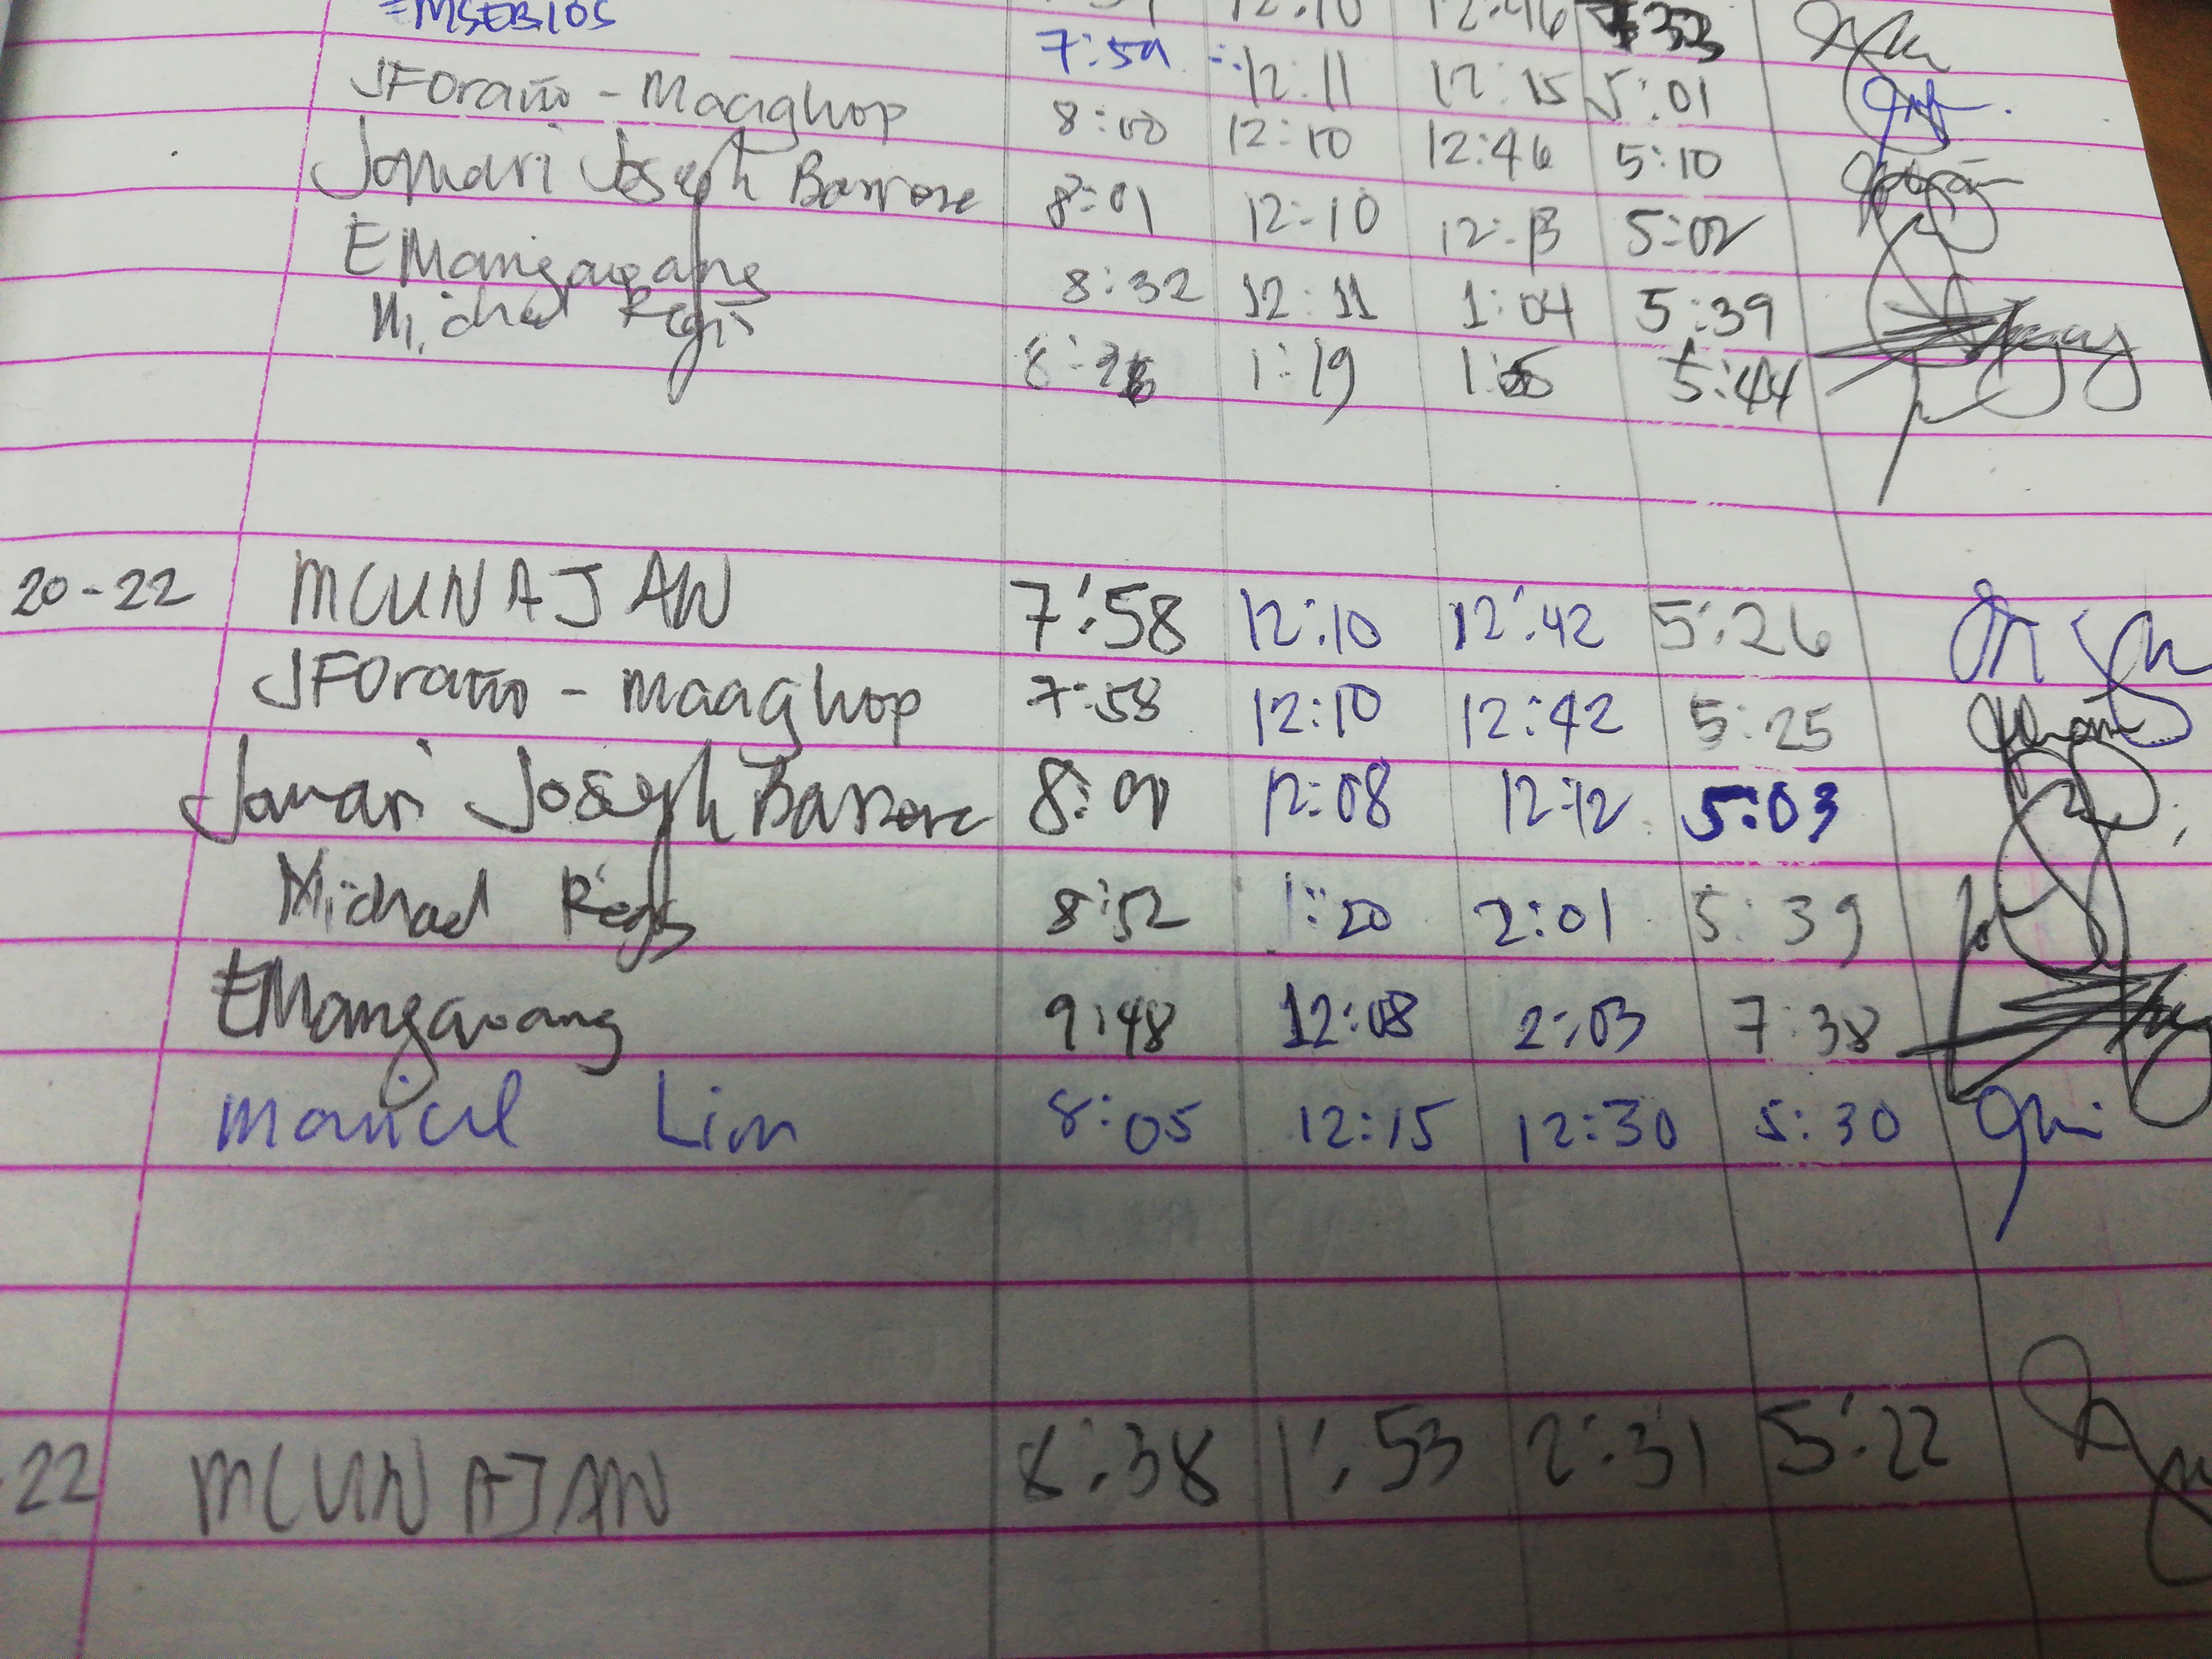 EMSEBIOS 7:59 12:11 12:15 5:01
JFOraño - Maaghop 8:00 12:10 12:46 5:10
Jomari Joseph Barrore 8:01 12:10 12:13 5:02
EMangawang 8:32 12:11 1:04 5:39
Michael Regis 1:19 5:44
20-22 MCUNAJAN 7:58 12:10 12:42 5:26
JFOraño - Maaghop 7:58 12:10 12:42 5:25
Jomari Joseph Barrore 8:00 12:08 12:12 5:03
Michael Regis 8:52 1:20 2:01 5:39
EMangawang 9:48 12:08 2:03 7:38
Maricel Lim 8:05 12:15 12:30 5:30
22 MCUNAJAN 8:38 1:53 2:31 5:22